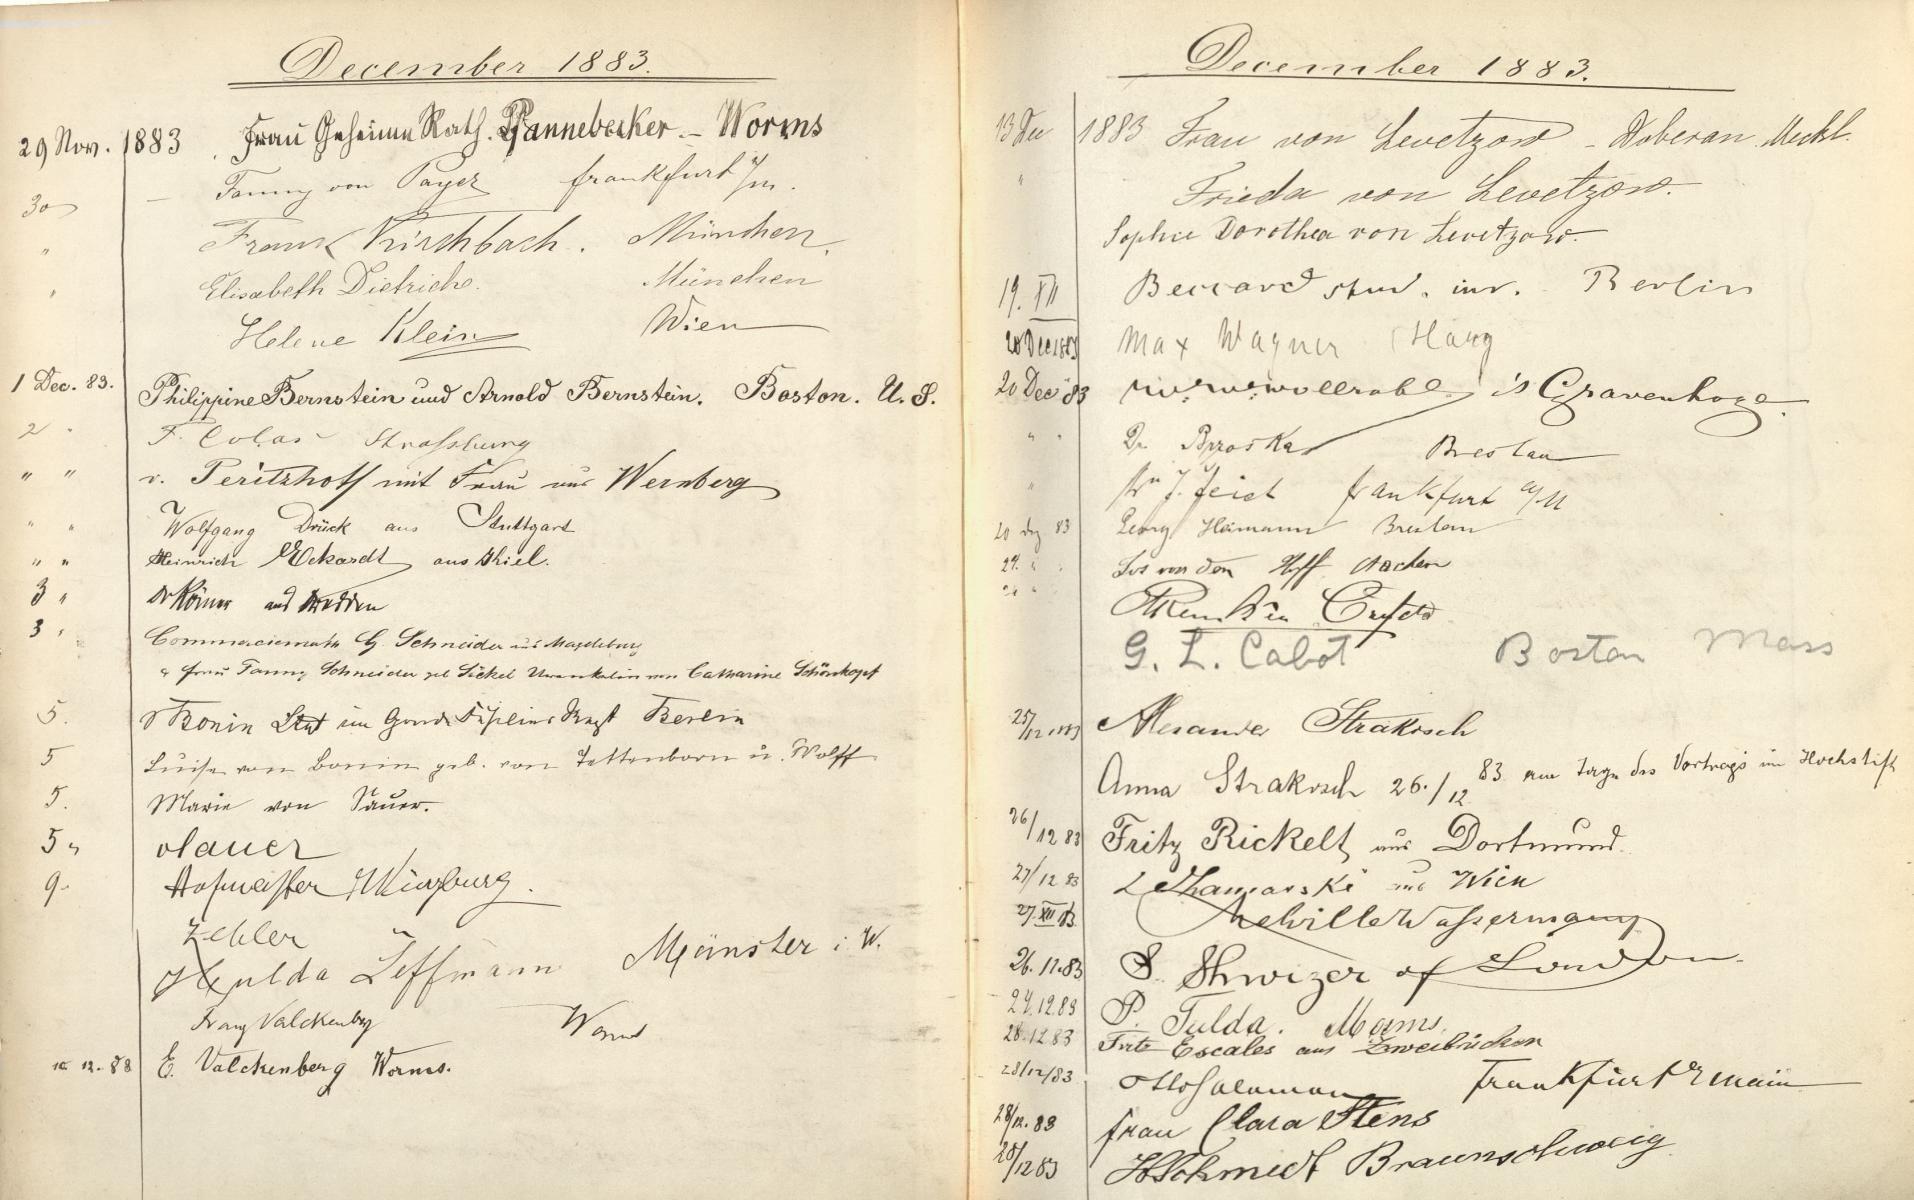 December 1883.
29 Nov. 1883 Frau Geheime Rath. Pfannebecker - Worms
Fanny von Payer Frankfurt a/m.
30 Frank Kirchbach. München.
" Elisabeth Dietrich. München
" Helene Klein Wien
1 Dec. 83. Philippine Bernstein und Arnold Bernstein. Boston. U. S.
2 " F. Colas Strassburg
" " v. Peritzhoff mit Frau aus Wernberg
" " Wolfgang Drück aus Stuttgart
" " Heinrich Eckardt aus Kiel.
3 " Dr Körner aus Dresden
3 " Commercienrath G. Schneider aus Magdeburg
u Frau Fanny Schneider geb Urenkelin von Catharine Schönkopf
5. v Bonin im Regt Berlin
5 Luise von Bonin geb. von Tettenborn u. Wolff
5. Marie von Sauer.
5 "
9. Hofmeister Würzburg.
Zehler
Hulda Leffmann Münster i. W.
Franz Valckenberg Worms
10. 12. 83 E. Valckenberg Worms.
December 1883.
13 Dec 1883 Frau von Levetzow - Doberan. Meckl.
" Frieda von Levetzow.
Sophie Dorothea von Levetzow.
19. XII Beccard stud. iur. Berlin
20 Dec 1883 Max Wagner Haag
20 Dec 83 's Gravenhage.
" " Dr. Brzoska Breslau
" J. Frankfurt a/M
20 dez 83 Georg Heimann Breslau
24. " von den Hoff Aachen
Crefeld
G. L. Cabot Boston Mass
25/12 1883 Alexander Strakosch
Anna Strakosch 26./12 83 am Tage des Vortrags im Hochstift
26/12 83 Fritz Rickelt aus Dortmund
27/12 83 aus Wien
27. XII 83 Melville Wassermann
26. 12. 83 S. Shwizer of London.
27. 12. 83 P. Fulda. Mainz.
28. 12. 83 Fritz Escales aus Zweibrücken
28/12/83 Otto Salomon Frankfurt a Main
28/12. 83 Frau Clara Stens
28/12 83 H Schmidt Braunschweig